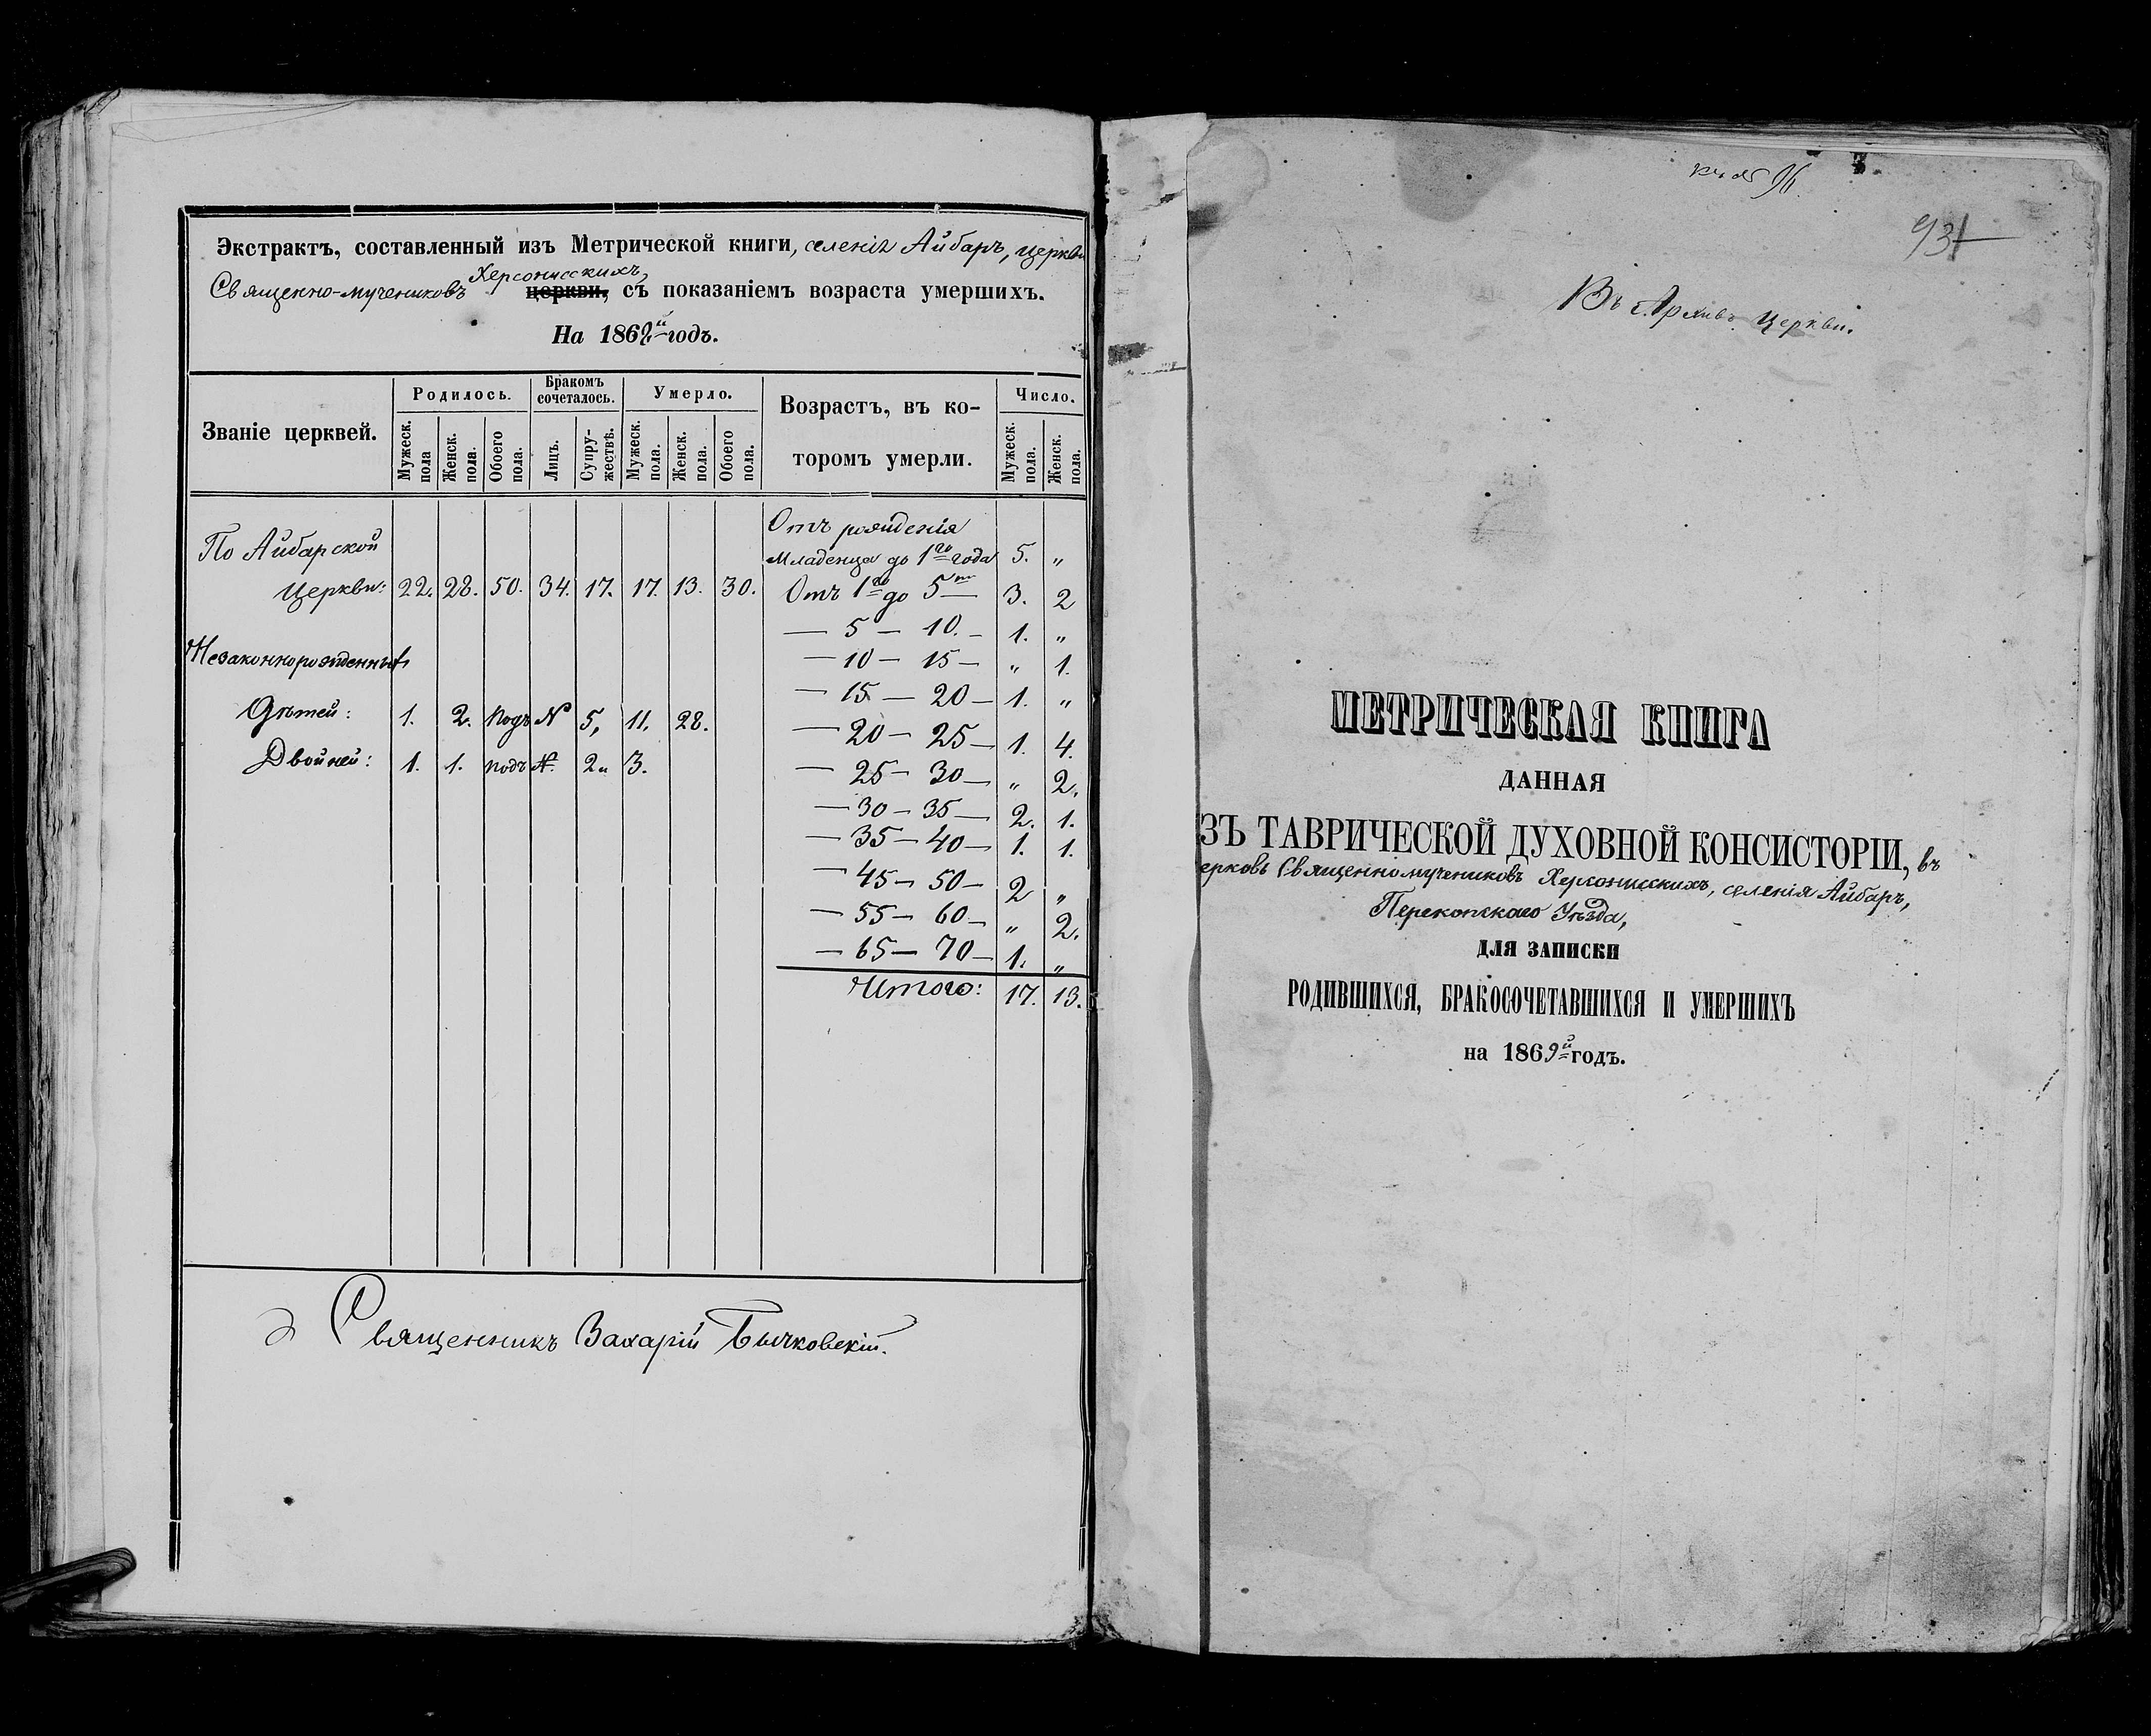 Экстрактъ, составленный изъ Метрической книги, селенія Айбаръ, церкви
Священно-мучениковъ Херсонисскихъ, церкви, съ показаніемъ возраста умершихъ.
На 1868й годъ.
Званіе церквей. Родилось. Бракомъ сочеталось. Умерло. Возрастъ, въ ко- Число.
торомъ умерли.
Мужеск. пола Женск. пола. Обоего пола. Лицъ. Супру- жествѣ. Мужеск. пола. Женск. пола. Обоего пола. Мужеск. пола. Женск. пола.
Отъ рожденія
По Айбарской Младенца до 1го года 5. „
Церкви: 22. 28. 50. 34. 17. 17. 13. 30. Отъ 1го до 5ти 3. 2
— 5 — 10. — 1. „
Незаконнорожденныхъ — 10 — 15 — „ 1.
— 15 — 20 — 1. „
Дѣтей: 1. 2. подъ N 5, 11, 28. — 20 — 25 — 1. 4.
Двойней: 1. 1. подъ N. 2 „ 3. — 25 — 30 — „ 2.
— 30 — 35 — 2. 1.
— 35 — 40 — 1. 1.
— 45 — 50 — 2 „
— 55 — 60 — „ 2.
— 65 — 70 — 1. „
Итого: 17. 13.
Священникъ Захарій Бычковскій.
931
Въ Архивъ Церкви.
МЕТРИЧЕСКАЯ КНИГА
ДАННАЯ
ЗЪ ТАВРИЧЕСКОЙ ДУХОВНОЙ КОНСИСТОРІИ, въ
ерковь Священномучениковъ Херсонисскихъ, селенія Айбаръ,
Перекопскаго Уѣзда,
ДЛЯ ЗАПИСКИ
РОДИВШИХСЯ, БРАКОСОЧЕТАВШИХСЯ И УМЕРШИХЪ
на 1869й годъ.